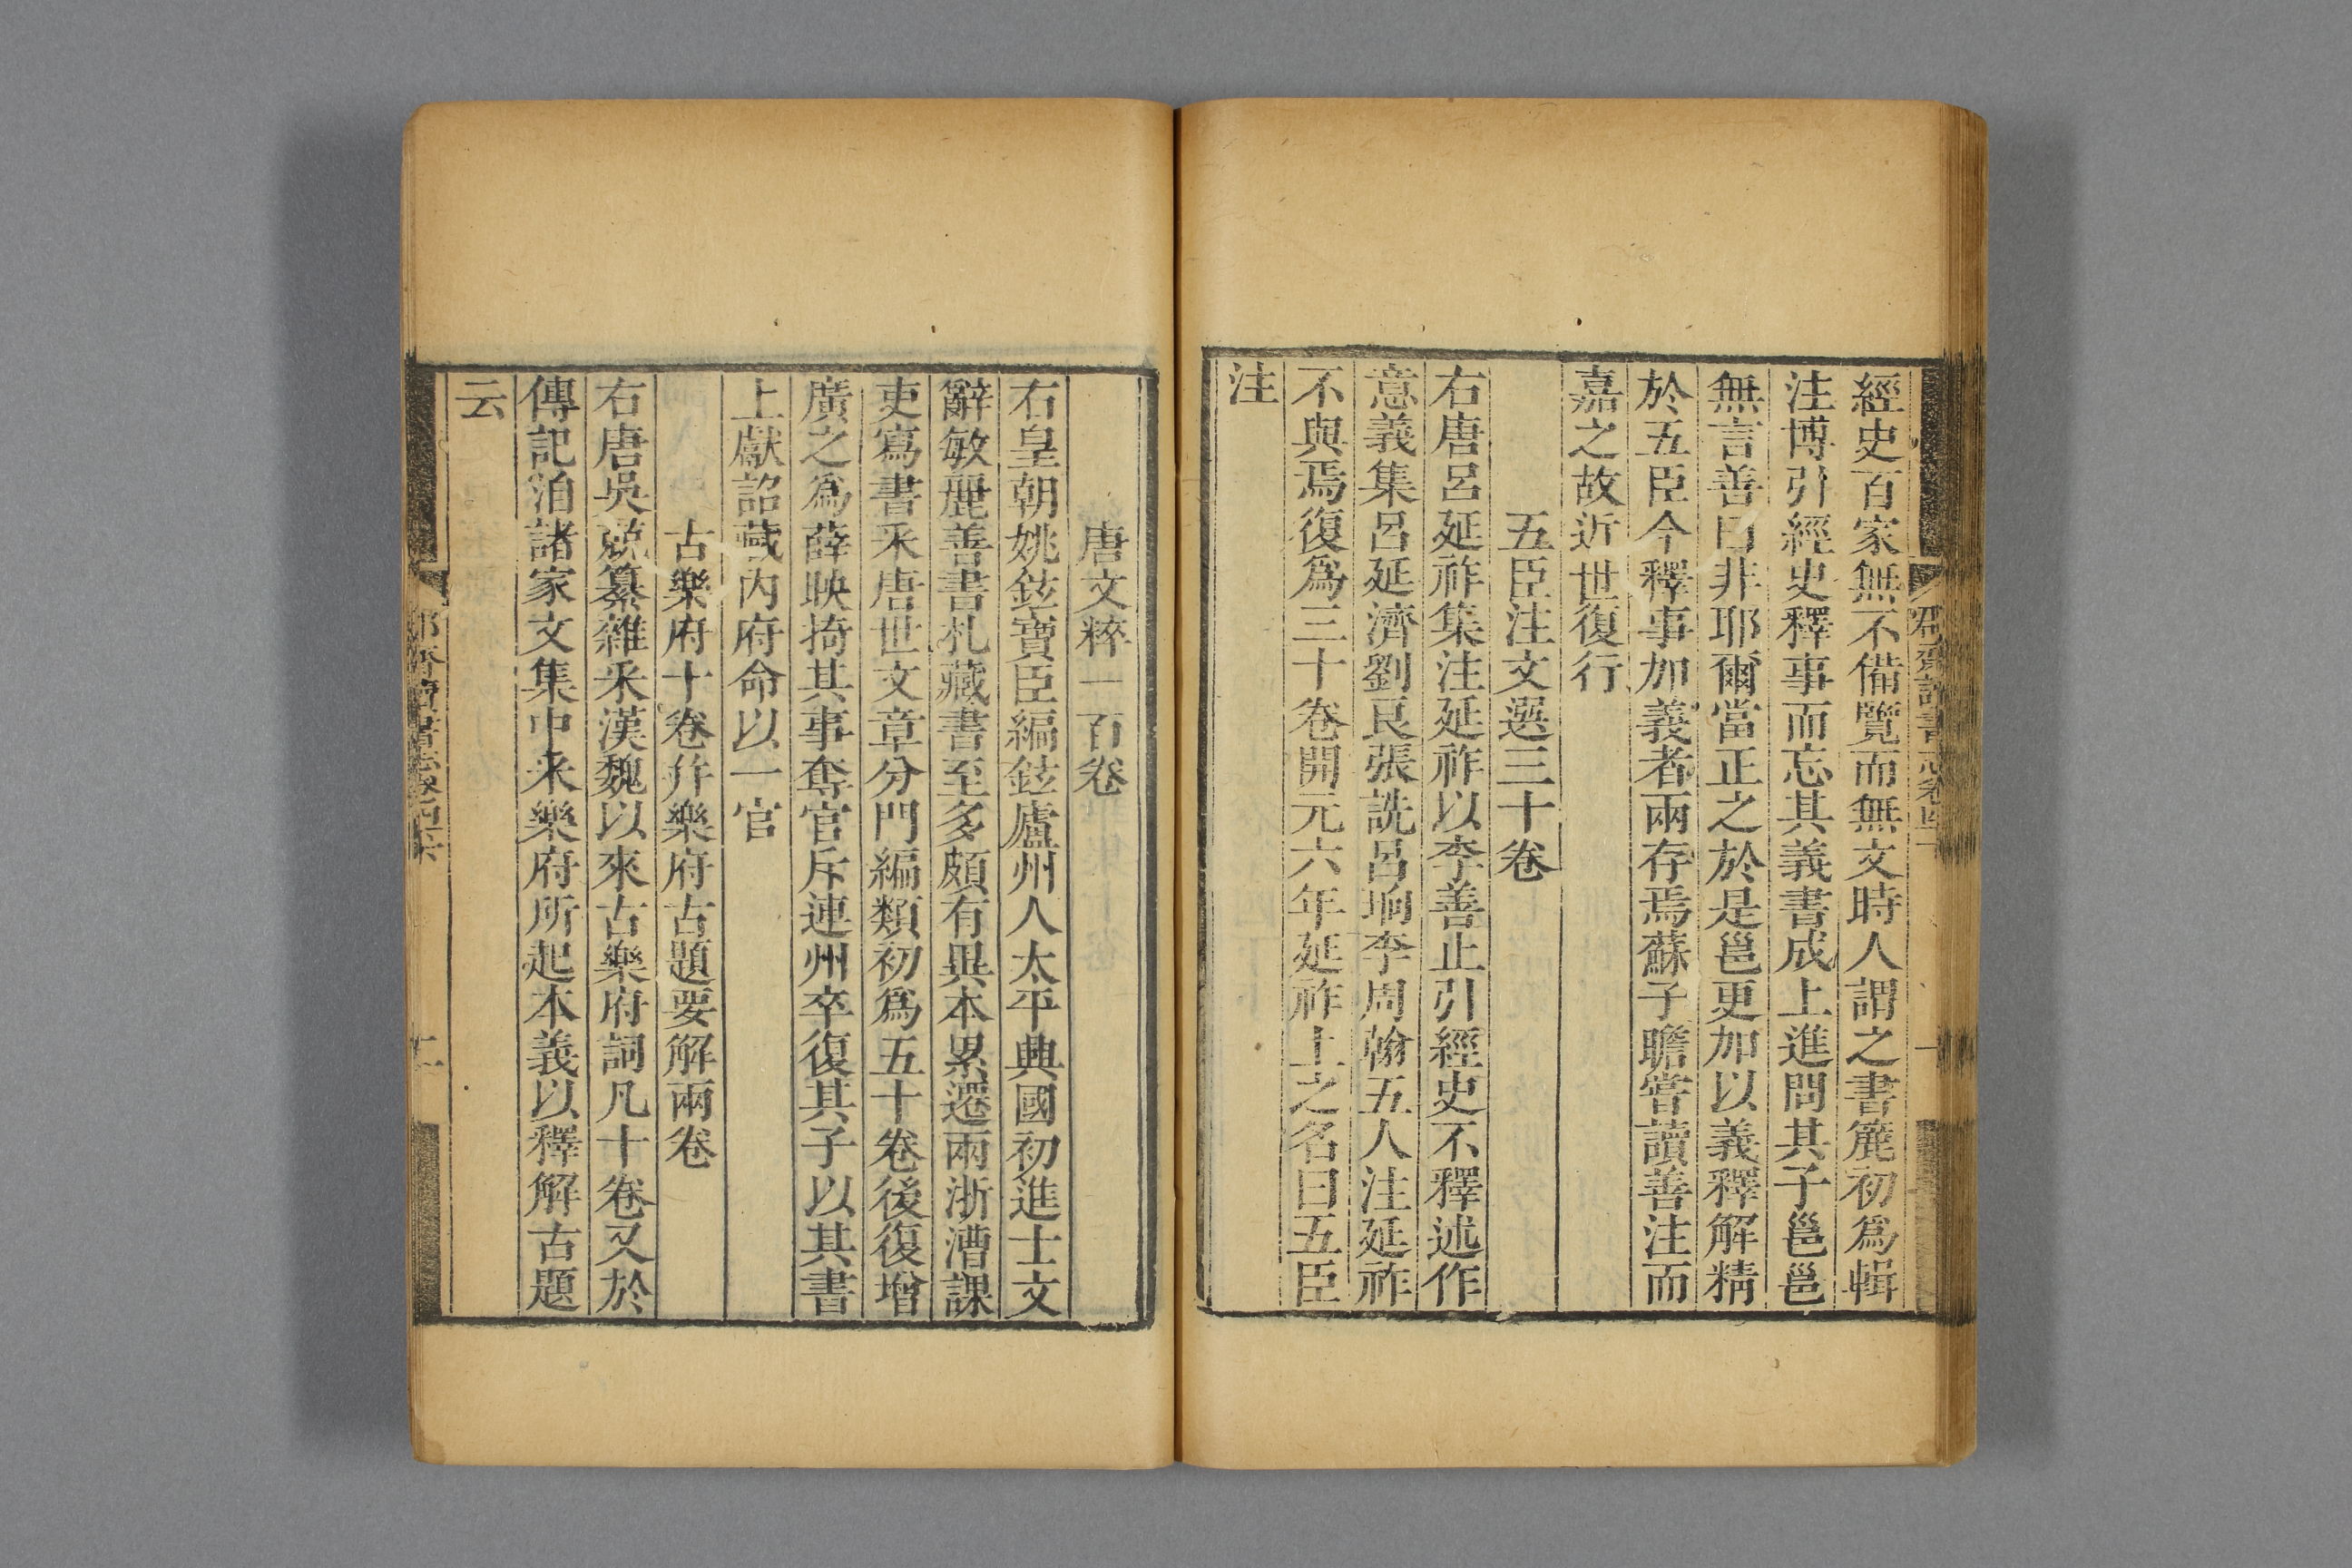 經史百家無不備覽而無文時人謂之書簏初爲輯
注博引經史釋事而忘其義書成上進問其子邕邕
無言善曰非耶爾當正之於是邕更加以義釋解精
於五臣今釋事加義者兩存焉蘇子瞻嘗讀善注而
嘉之故近世復行
五臣注文選三十卷
右唐呂延祚集注延祚以李善止引經史不釋述作
意義集呂延濟劉良張詵呂珦李周翰五人注延祚
不與焉復爲三十卷開元六年延祚上之名曰五臣
注
唐文粹一百卷
右皇朝姚鉉寶臣編鉉廬州人太平典國初進士文
辭敏麗善書札藏書至多頗有異本累遷兩浙漕課
吏寫書采唐世文章分門編類初爲五十卷後復增
廣之爲薛映掎其事奪官斥連州卒復其子以其書
上獻詔藏內府命以一官
古樂府十卷幷樂府古題要解兩卷
右唐吳兢纂雜采漢魏以來古樂府詞凡十卷又於
傳記洎諸家文集中采樂府所起本義以釋解古題
云